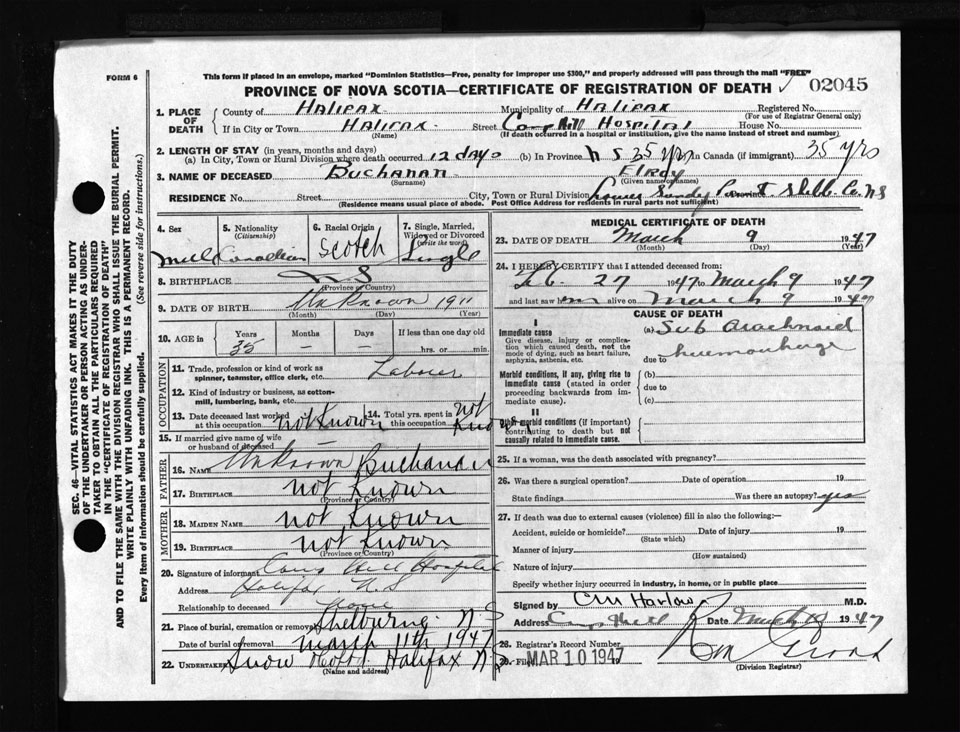 FORM 6
This form if placed in an envelope, marked "Dominion Statistics—Free, penalty for improper use $300," and properly addressed will pass through the mail "FREE"
PROVINCE OF NOVA SCOTIA—CERTIFICATE OF REGISTRATION OF DEATH 02045
1. PLACE OF DEATH
County of Halifax Municipality of Halifax Registered No.
(For use of Registrar General only)
If in City or Town Halifax Street Camp Hill Hospital House No.
(Name) (If death occurred in a hospital or institution, give the name instead of street and number)
2. LENGTH OF STAY (in years, months and days)
(a) In City, Town or Rural Division where death occurred 12 days (b) In Province N S 35 yrs In Canada (if immigrant) 35 yrs
3. NAME OF DECEASED Buchanan Elroy
(Surname) (Given name or names)
RESIDENCE No. Street City, Town or Rural Division Lower Sandy Point Shelb. Co. N S
(Residence means usual place of abode. Post Office Address for residents in rural parts not sufficient)
4. Sex 5. Nationality (Citizenship) 6. Racial Origin 7. Single, Married, Widowed or Divorced (Write the word)
Canadian Scotch Single
8. BIRTHPLACE N S
(Province or Country)
9. DATE OF BIRTH Unknown 1911
(Month) (Day) (Year)
10. AGE in Years Months Days If less than one day old
35 – – hrs. or min.
OCCUPATION
11. Trade, profession or kind of work as spinner, teamster, office clerk, etc. Laborer
12. Kind of industry or business, as cotton-mill, lumbering, bank, etc.
13. Date deceased last worked at this occupation not Known 14. Total yrs. spent in this occupation not Known
15. If married give name of wife or husband of deceased —
FATHER
16. NAME Unknown Buchanan
17. BIRTHPLACE not Known
(Province or Country)
MOTHER
18. MAIDEN NAME not Known
19. BIRTHPLACE not Known
(Province or Country)
20. Signature of informant Camp Hill Hospital
Address Halifax N. S
Relationship to deceased none
21. Place of burial, cremation or removal Shelburne N. S
Date of burial or removal March 11th 1947
22. UNDERTAKER Snow Halifax N.S
(Name and address)
MEDICAL CERTIFICATE OF DEATH
23. DATE OF DEATH March 9 1947
(Month) (Day) (Year)
24. I HEREBY CERTIFY that I attended deceased from:
27 1947 to March 9 1947
and last saw him alive on March 9 1947
CAUSE OF DEATH
I
Immediate cause
Give disease, injury or complication which caused death, not the mode of dying, such as heart failure, asphyxia, asthenia, etc.
(a) Sub Arachnoid
haemorrhage
due to
Morbid conditions, if any, giving rise to immediate cause (stated in order proceeding backwards from immediate cause).
(b)
due to
(c)
II
Other morbid conditions (if important) contributing to death but not causally related to immediate cause.
25. If a woman, was the death associated with pregnancy?
26. Was there a surgical operation? Date of operation 19
State findings Was there an autopsy? yes
27. If death was due to external causes (violence) fill in also the following:—
Accident, suicide or homicide? Date of injury 19
(State which)
Manner of injury
(How sustained)
Nature of injury
Specify whether injury occurred in industry, in home, or in public place
Signed by C M Harlow M.D.
Address Camp Hill Date March 10 1947
28. Registrar's Record Number
29. Filed MAR 10 1947
(Division Registrar)
SEC. 46—VITAL STATISTICS ACT MAKES IT THE DUTY OF THE UNDERTAKER OR PERSON ACTING AS UNDERTAKER TO OBTAIN ALL THE PARTICULARS REQUIRED IN THE "CERTIFICATE OF REGISTRATION OF DEATH" AND TO FILE THE SAME WITH THE DIVISION REGISTRAR WHO SHALL ISSUE THE BURIAL PERMIT.
WRITE PLAINLY WITH UNFADING INK. THIS IS A PERMANENT RECORD.
Every item of information should be carefully supplied. (See reverse side for instructions.)